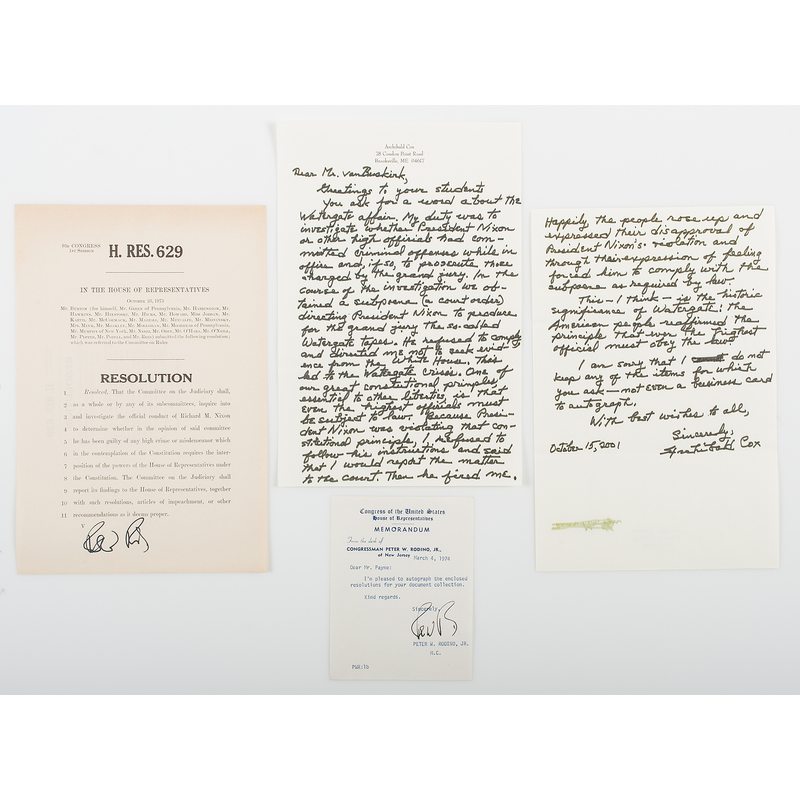 93D CONGRESS
1ST SESSION
H. RES. 629
IN THE HOUSE OF REPRESENTATIVES
OCTOBER 23, 1973
RESOLUTION
1 Resolved, That the Committee on the Judiciary shall,
2 as a whole or by any of its subcommittees, inquire into
3 and investigate the official conduct of Richard M. Nixon
4 to determine whether in the opinion of said committee
5 he has been guilty of any high crime or misdemeanor which
6 in the contemplation of the Constitution requires the inter-
7 position of the powers of the House of Representatives under
8 the Constitution. The Committee on the Judiciary shall
9 report its findings to the House of Representatives, together
10 with such resolutions, articles of impeachment, or other
11 recommendations as it deems proper.
V
Archibald Cox
Brooksville, ME 04617
Dear Mr. VanBuskirk,
Greetings to your students
You ask for a word about the
Watergate affair. My duty was to
investigate whether President Nixon
or other high officials had com-
mitted criminal offenses while in
office and, if so, to prosecute those
charged by the grand jury. In the
course of the investigation we ob-
tained a subpoena (a court order)
directing President Nixon to produce
for the grand jury the so-called
Watergate tapes. He refused to comply
and directed me not to seek evid-
ence from the White House. This
led to the Watergate Crisis. One of
our great constitutional principles,
essential to other liberties, is that
even the highest officials must
be subject to law. Because Presi-
dent Nixon was violating that con-
stitutional principle, I refused to
follow his instructions and said
that I would report the matter
to the court. Then he fired me.
Happily, the people rose up and
expressed their disapproval of
President Nixon's violation and
through their expression of feeling
forced him to comply with the
subpoena as required by law.
This - I think - is the historic
significance of Watergate: the
American people reaffirmed the
principle that even the highest
official must obey the law
I am sorry that I do not
keep any of the items for which
you ask - not even a business card
to autograph.
With best wishes to all,
Sincerely,
October 15, 2001
Archibald Cox
Congress of the United States
House of Representatives
MEMORANDUM
From the desk of
CONGRESSMAN PETER W. RODINO, JR.,
of New Jersey
March 4, 1974
Dear Mr. Payne:
I'm pleased to autograph the enclosed
resolutions for your document collection.
Kind regards.
Sincerely,
PETER W. RODINO, JR.
M.C.
PWR:lb